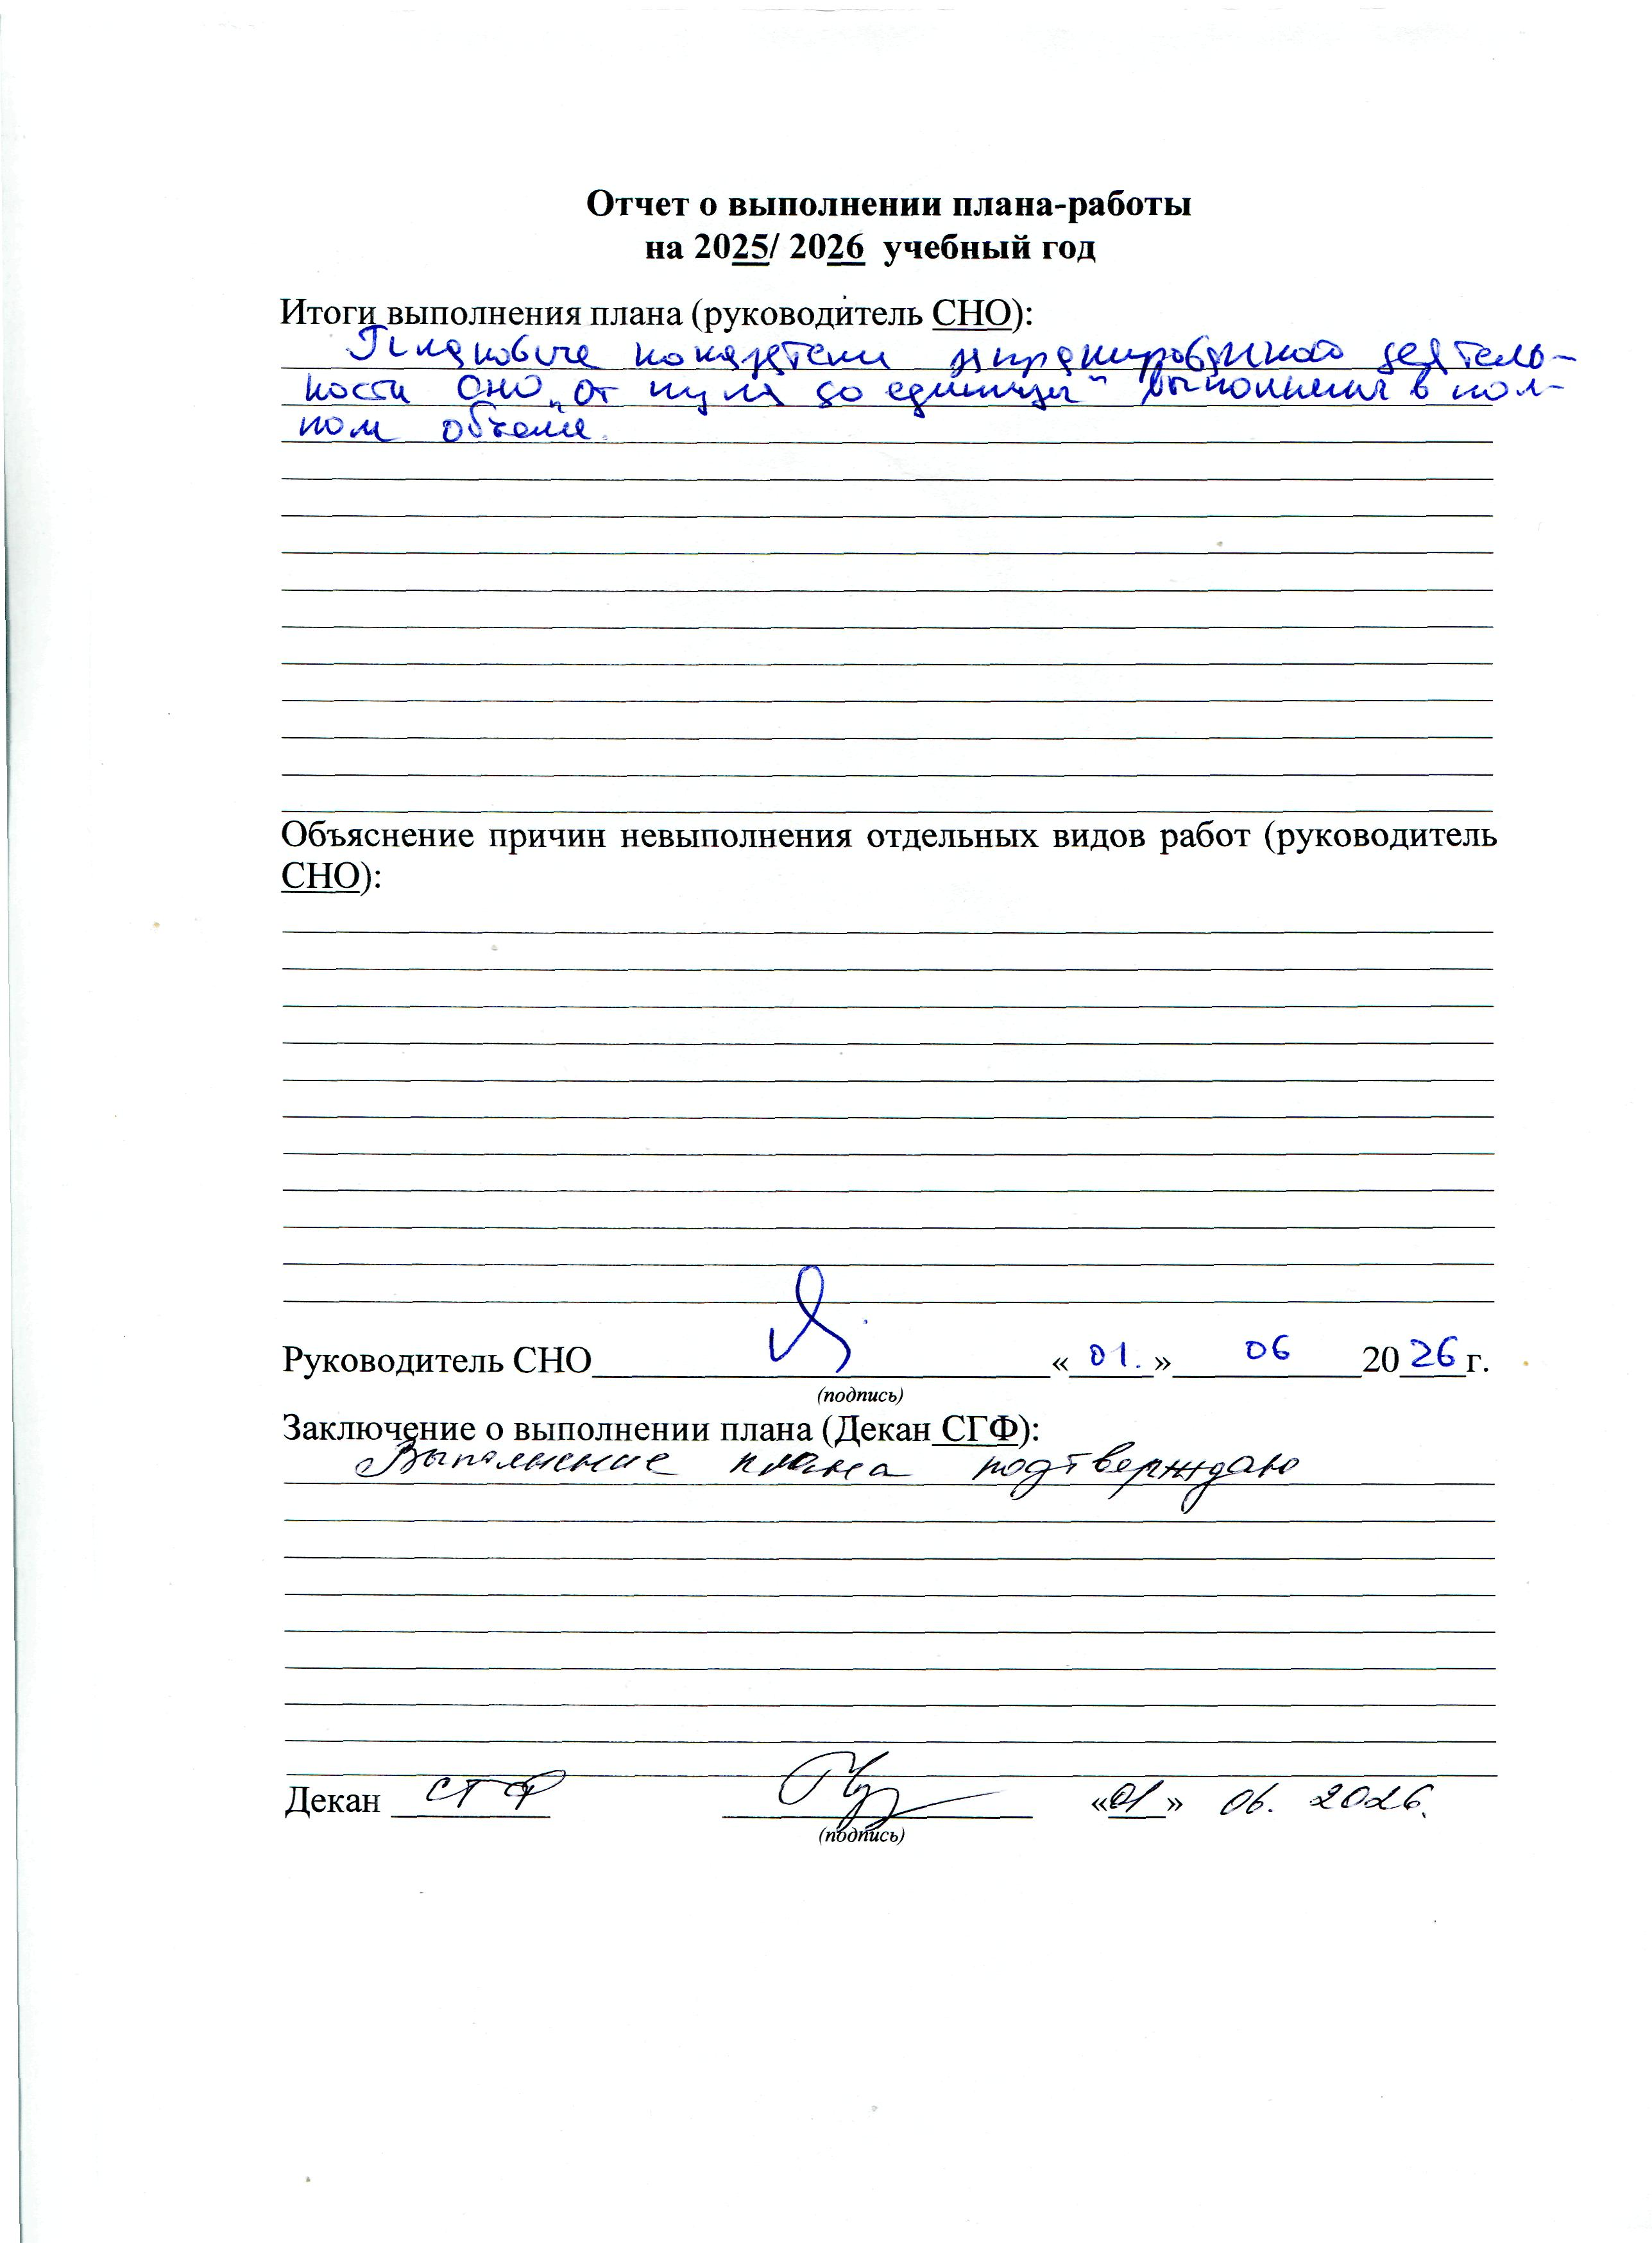 Отчет о выполнении плана-работы
на 2025/ 2026 учебный год
Итоги выполнения плана (руководитель СНО):
Плановые показатели запланированной деятель-
ности СНО „От нуля до единицы“ выполнены в пол-
ном объеме.
Объяснение причин невыполнения отдельных видов работ (руководитель
СНО):
Руководитель СНО «01.» 06 2026 г.
(подпись)
Заключение о выполнении плана (Декан СГФ):
Выполнение плана подтверждаю
Декан СГФ «01» 06. 2026.
(подпись)